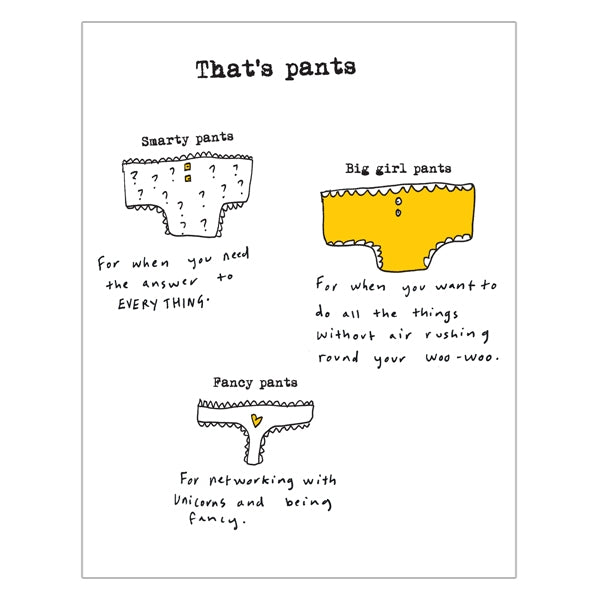 That's pants
Smarty pants
For when you need
the answer to
EVERYTHING.
Big girl pants
For when you want to
do all the things
without air rushing
round your woo-woo.
Fancy pants
For networking with
Unicorns and being
fancy.